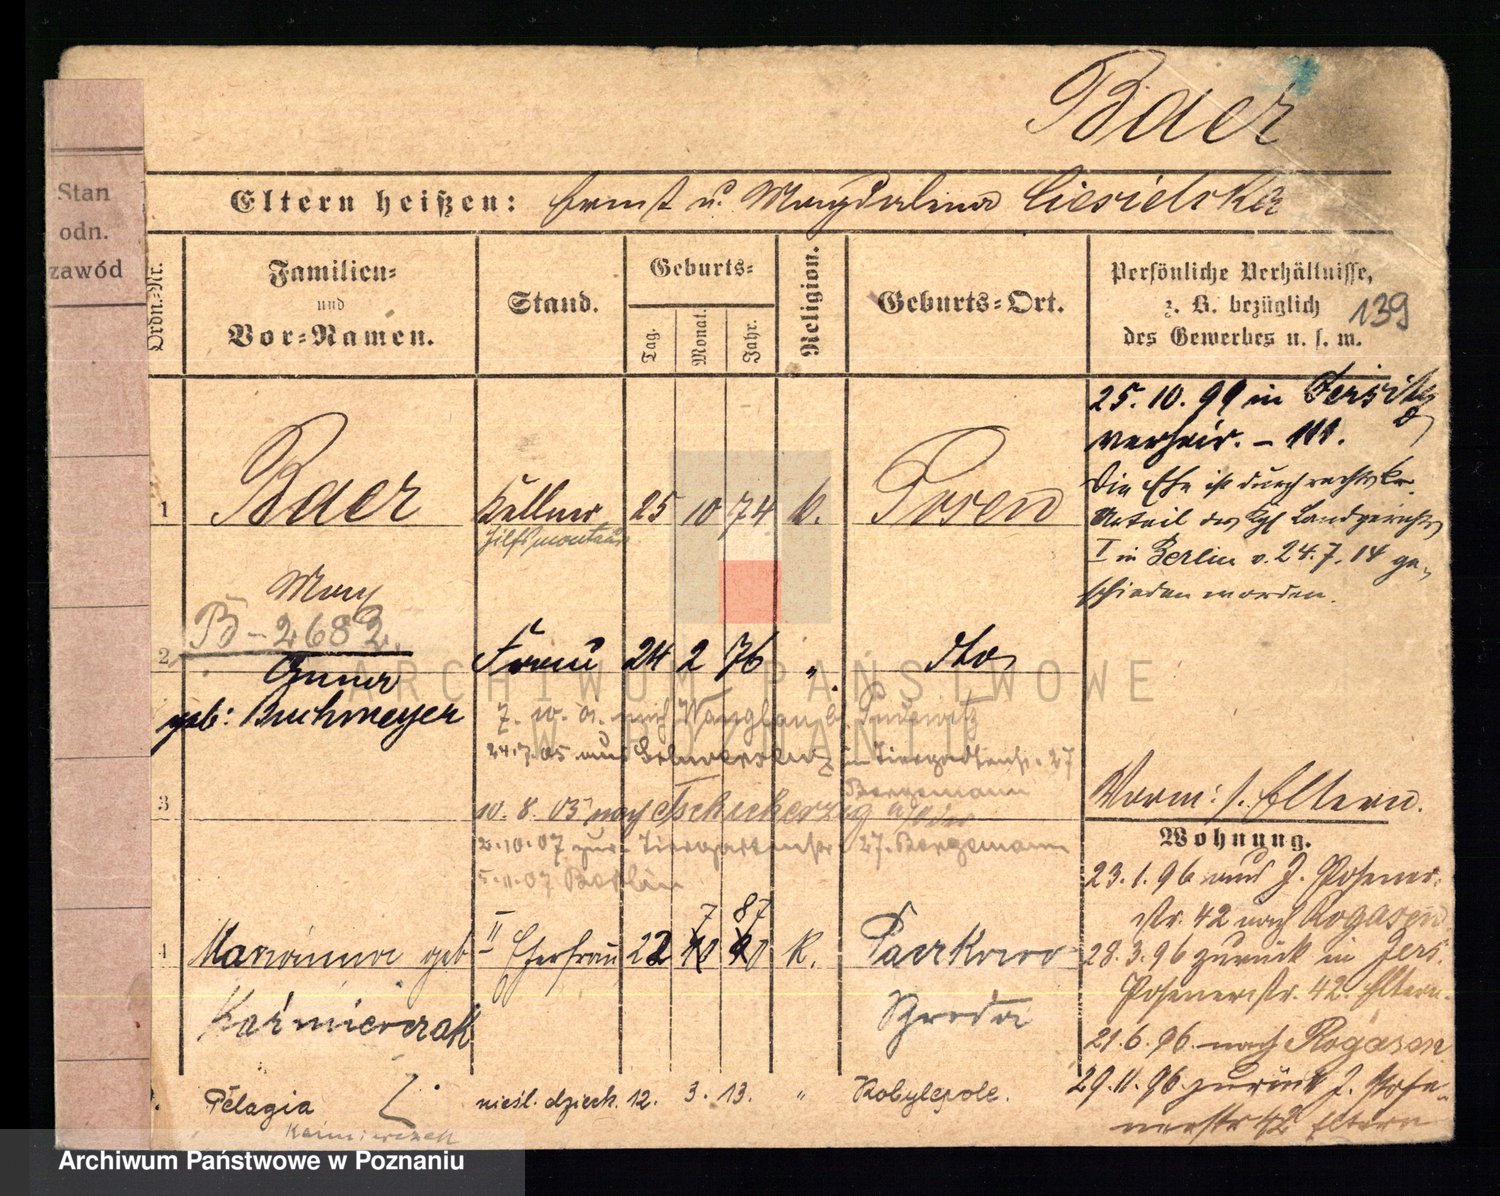 Baer
Stan
odn.
zawód
Eltern heißen: Ernst u. Magdalena Ciesielska
Ordn.-Nr.
Familien-
und
Vor-Namen.
Stand.
Geburts-
Tag.
Monat.
Jahr.
Religion.
Geburts-Ort.
Persönliche Verhältnisse,
z. B. bezüglich
des Gewerbes u. s. w.
139
25. 10. 99 in Jersitz
verheir. –
Die Ehe ist durch rechtskr.
Urteil des Kgl Landgerichts
I in Berlin v. 24.7.14 ge-
schieden worden.
1 Baer Kellner 25 10 74 k. Posen
Hilfsmonteur
Max
B-2682
2 Anna Frau 24 2 76 " dto
geb: Buchmeyer
24.7.05 aus Tiergartenstr. 27
Bergemann
3 10. 8. 05 nach Tschicherzig a/Oder
2.10.07 zur. Tiergartenstr. 27. Bergemann
5.11.07 Berlin
Vorm: s. Eltern.
Wohnung.
23.1.96 aus J. Posener-
str. 42 nach Rogasen
28.3.96 zurück in Jers.
Posenerstr. 42. Eltern.
21.6.96 nach Rogasen
29.11.96 zurück J. Pose-
nerstr 42 Eltern
4 Marianna geb II Ehefrau 22 7 87 k. Paczkowo
Kaźmierczak Schroda
Pelagia nieśl. dzieck. 12. 3. 13. " Kobylepole.
Kaźmierczak
ARCHIWUM PAŃSTWOWE
W POZNANIU
Archiwum Państwowe w Poznaniu